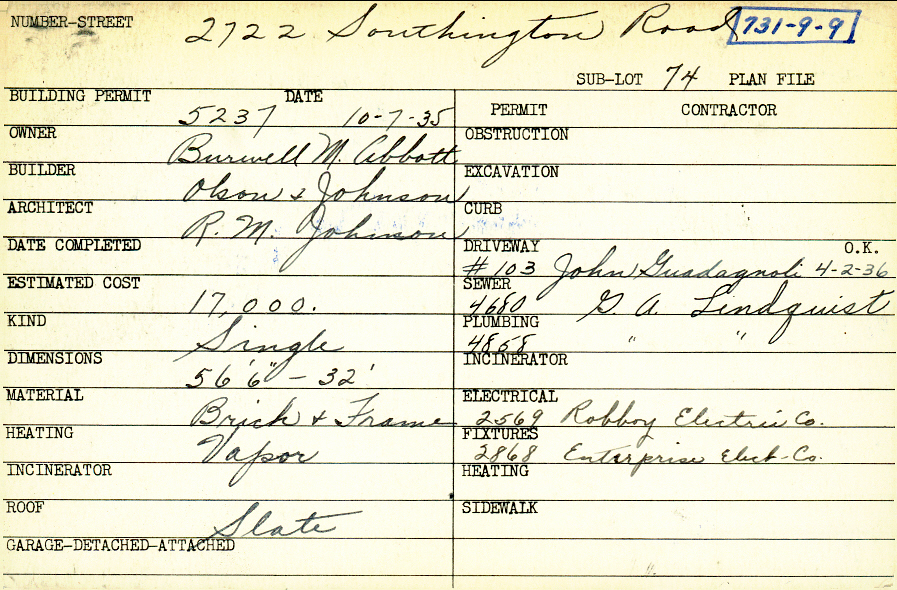 NUMBER-STREET 2722 Southington Road 731-9-9
SUB-LOT 74 PLAN FILE
BUILDING PERMIT 5237 DATE 10-7-35
OWNER Burwell M. Abbott
BUILDER Olson & Johnson
ARCHITECT R. M. Johnson
DATE COMPLETED
ESTIMATED COST 17,000.
KIND Single
DIMENSIONS 56'6" - 32'
MATERIAL Brick & Frame
HEATING Vapor
INCINERATOR
ROOF Slate
GARAGE-DETACHED-ATTACHED
PERMIT CONTRACTOR
OBSTRUCTION
EXCAVATION
CURB
DRIVEWAY O.K.
#103 John Guadagnoli 4-2-36
SEWER
4680 G. A. Lindquist
PLUMBING
4858 " "
INCINERATOR
ELECTRICAL
2569 Robboy Electric Co.
FIXTURES
2868 Enterprise Elect. Co.
HEATING
SIDEWALK